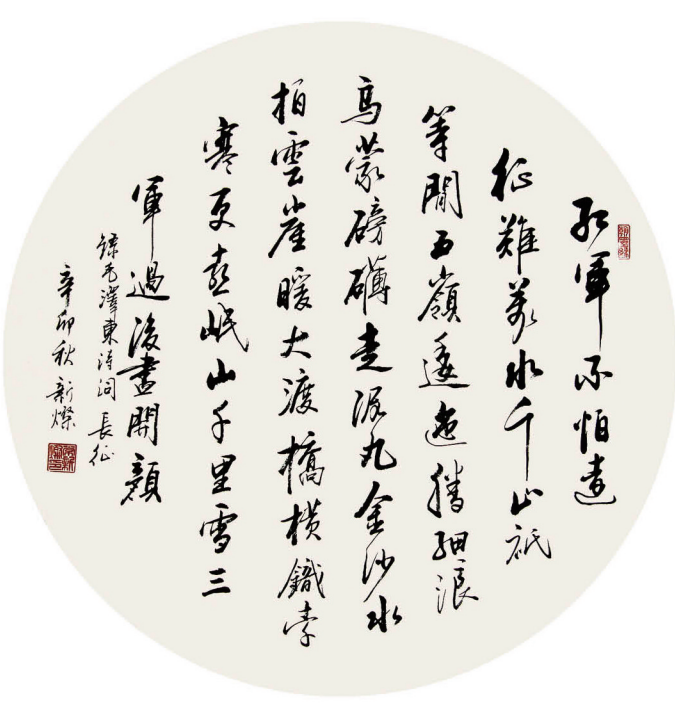 红軍不怕遠
征難萬水千山祇
等閒五嶺逶迤騰細浪
烏蒙磅礴走泥丸金沙水
拍雲崖暖大渡橋橫鐵索
寒更喜岷山千里雪三
軍過後盡開顏
錄毛澤東诗词 長征
辛卯秋 新燦